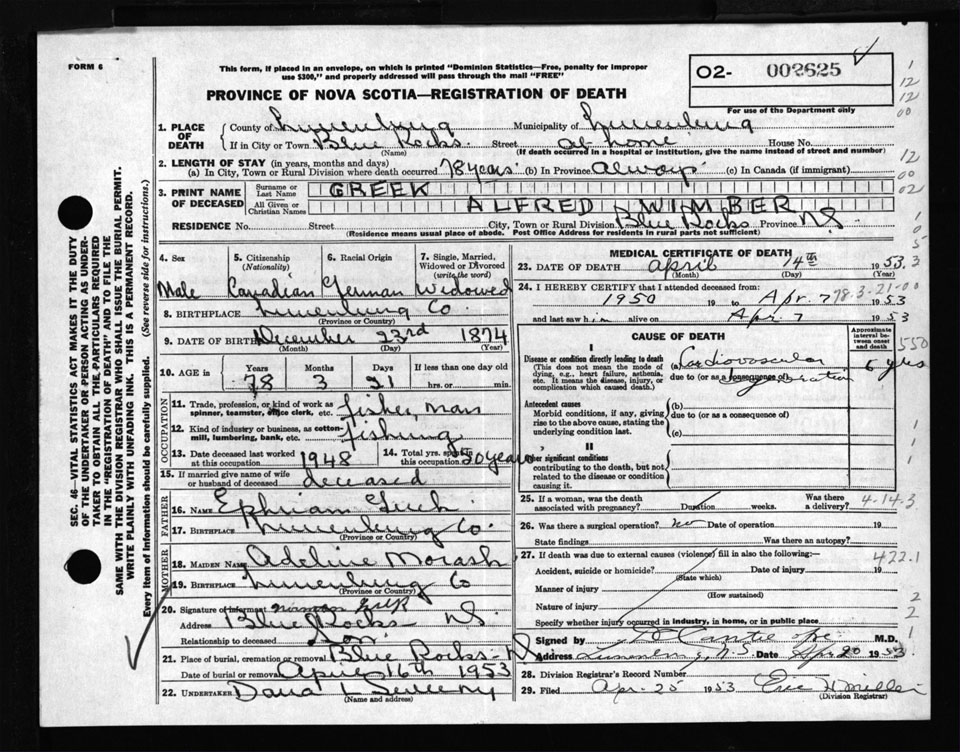 FORM 6
This form, if placed in an envelope, on which is printed "Dominion Statistics—Free, penalty for improper
use $300," and properly addressed will pass through the mail "FREE"
O2- 002625
For use of the Department only
PROVINCE OF NOVA SCOTIA—REGISTRATION OF DEATH
1. PLACE OF DEATH
County of Lunenburg Municipality of Lunenburg
If in City or Town Blue Rocks. Street at home House No.
(Name) (If death occurred in a hospital or institution, give the name instead of street and number)
2. LENGTH OF STAY (in years, months and days)
(a) In City, Town or Rural Division where death occurred 78 years (b) In Province Always (c) In Canada (if immigrant)
3. PRINT NAME OF DECEASED
Surname or Last Name GREEK
All Given or Christian Names ALFRED WIMBER
RESIDENCE No. Street City, Town or Rural Division Blue Rocks Province NS
(Residence means usual place of abode. Post Office Address for residents in rural parts not sufficient)
4. Sex Male
5. Citizenship (Nationality) Canadian
6. Racial Origin German
7. Single, Married, Widowed or Divorced (write the word) Widowed
8. BIRTHPLACE Lunenburg Co.
(Province or Country)
9. DATE OF BIRTH December 23rd 1874
(Month) (Day) (Year)
10. AGE in Years Months Days If less than one day old
78 3 21 hrs. or min.
OCCUPATION
11. Trade, profession, or kind of work as spinner, teamster, office clerk, etc. fisher man
12. Kind of industry or business, as cotton-mill, lumbering, bank, etc. fishing
13. Date deceased last worked at this occupation 1948
14. Total yrs. spent in this occupation 50 years
15. If married give name of wife or husband of deceased deceased
FATHER
16. Name Ephriam
17. Birthplace Lunenburg Co.
(Province or Country)
MOTHER
18. Maiden Name Adeline Morash
19. Birthplace Lunenburg Co
(Province or Country)
20. Signature of informant Norman
Address Blue Rocks NS
Relationship to deceased Son
21. Place of burial, cremation or removal Blue Rocks - NS
Date of burial or removal April 16th 1953
22. UNDERTAKER Dana L Sweeny
(Name and address)
MEDICAL CERTIFICATE OF DEATH
23. DATE OF DEATH April 14th 1953
(Month) (Day) (Year)
24. I HEREBY CERTIFY that I attended deceased from:
1950 19 to Apr. 7 1953
78.3-21-00
and last saw him alive on Apr. 7 1953
CAUSE OF DEATH
Approximate interval between onset and death
I
Disease or condition directly leading to death (a) Cardiovascular 6 yrs
(This does not mean the mode of dying, e.g., heart failure, asthenia, etc. It means the disease, injury, or complication which caused death.)
due to (or as a consequence of)
Antecedent causes
Morbid conditions, if any, giving rise to the above cause, stating the underlying condition last.
(b)
due to (or as a consequence of)
(c)
II
Other significant conditions
contributing to the death, but not related to the disease or condition causing it.
25. If a woman, was the death associated with pregnancy? Duration weeks. Was there a delivery?
4-14-3
26. Was there a surgical operation? no Date of operation 19
State findings Was there an autopsy?
27. If death was due to external causes (violence) fill in also the following:—
422.1
Accident, suicide or homicide? Date of injury 19
(State which)
Manner of injury
(How sustained)
Nature of injury
Specify whether injury occurred in industry, in home, or in public place
Signed by M.D.
Address Lunenburg, N.S. Date Apr 20 1953
28. Division Registrar's Record Number
29. Filed Apr. 25 1953 Eric H Miller
(Division Registrar)
SEC. 46—VITAL STATISTICS ACT MAKES IT THE DUTY
OF THE UNDERTAKER OR PERSON ACTING AS UNDER-
TAKER TO OBTAIN ALL THE PARTICULARS REQUIRED
IN THE "REGISTRATION OF DEATH" AND TO FILE THE
SAME WITH THE DIVISION REGISTRAR WHO SHALL ISSUE THE BURIAL PERMIT.
WRITE PLAINLY WITH UNFADING INK. THIS IS A PERMANENT RECORD.
Every item of information should be carefully supplied. (See reverse side for instructions.)